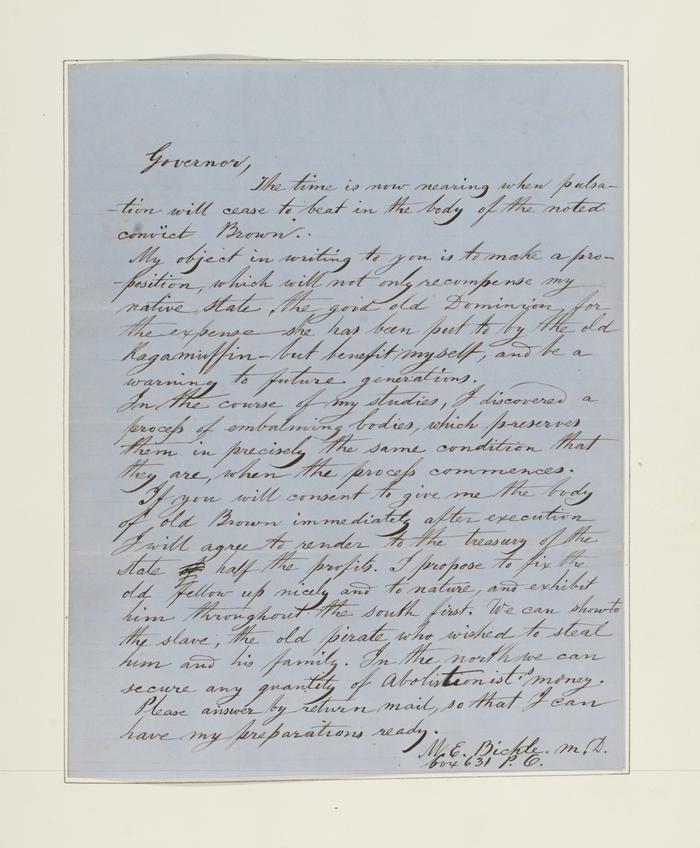 Governor,
The time is now nearing when pulsa-
-tion will cease to beat in the body of the noted
convict Brown..
My object in writing to you is to make a pro-
-position, which will not only recompense my
native state, the good old Dominion, for
the expense she has been put to by the old
Ragamuffin - but benefit myself, and be a
warning to future generations.
In the course of my studies, I discovered a
process of embalming bodies, which preserves
them in precisely the same condition that
they are, when the process commences.
If you will consent to give me the body
of old Brown immediately after execution
I will agree to render to the treasury of the
state half the profits. I propose to fix the
old fellow up nicely and to nature, and exhibit
him throughout the south first. We can show to
the slave, the old pirate who wished to steal
him and his family. In the north we can
secure any quantity of Abolitionist's money.
Please answer by return mail, so that I can
have my preparations ready.
M. E. Bickle. M.D.
box 631 P. O.